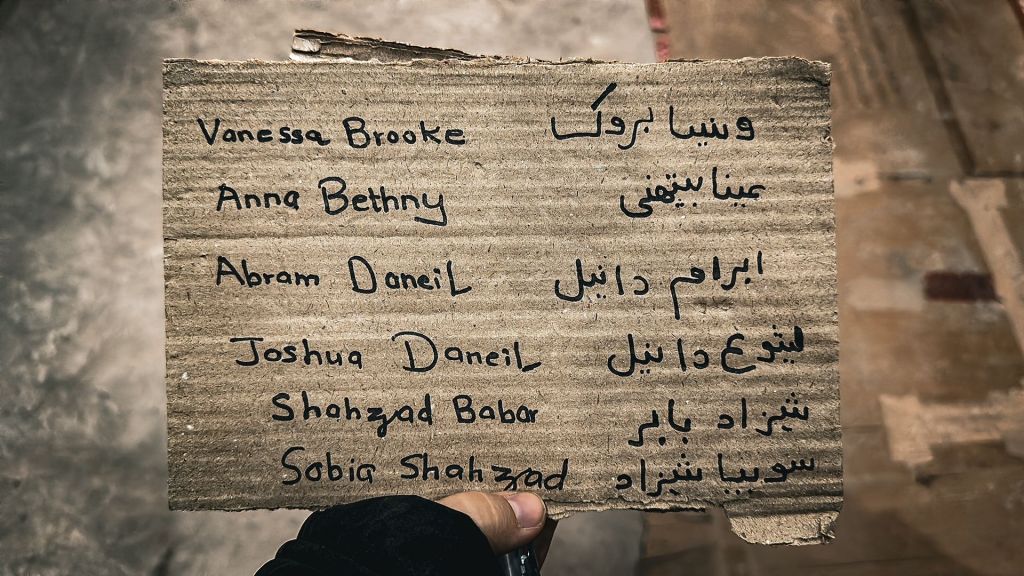 Vanessa Brooke ونیسا بروک
Anna Bethny عینا بیتھنی
Abram Daneil ابرام دانیل
Joshua Daneil یشوع دانیل
Shahzad Babar شہزاد بابر
Sobia Shahzad سوبیا شہزاد